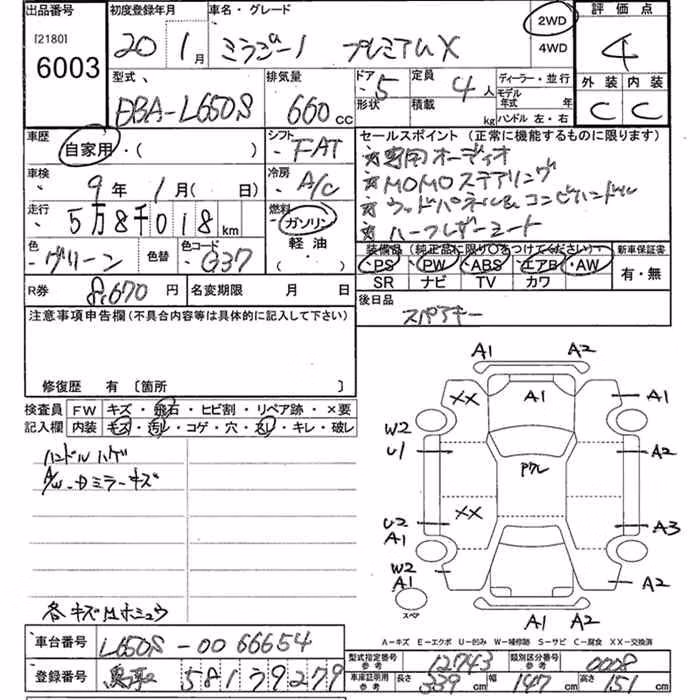 出品番号 初度登録年月 車名・グレード 2WD 評価点
[2180] 6003 20 1月 ミラジーノ プレミアムX 4WD 4
型式 排気量 ドア 定員 ディーラー・並行 外装 内装
DBA-L650S 660cc 5 4人 モデル年式 年 C C
形状 積載 kg ハンドル 左・右
車歴 シフト セールスポイント (正常に機能するものに限ります)
自家用・( ) FAT ☆専用オーディオ
車検 冷房 ☆MOMOステアリング
9年 1月( 日) A/C ☆ウッドパネル&コンビハンドル
走行 燃料 ☆ハーフレザーシート
5万8千018km ガソリン
色 色替 色コード 軽油 装備品 (純正品に限り○をつけてください) 新車保証書
グリーン G37 ( ) PS PW ABS エアB AW 有・無
R券 8,670円 名変期限 月 日 SR ナビ TV カワ
後日品
スペアキー
注意事項申告欄 (不具合内容等は具体的に記入して下さい)
修復歴 有 〔箇所 〕
検査員 FW キズ・飛石・ヒビ割・リペア跡・×要
記入欄 内装 キズ・汚レ・コゲ・穴・スレ・キレ・破レ
ハンドルハゲ
ミラーキズ
各キズ
A1 A2
XX A1 A1
W2 A2
U1 Pクレ A2
U2 XX A3
A1
W2 A2
A1
スペア A1 A2
A-キズ E-エクボ U-凹み W-補修跡 S-サビ C-腐食 XX-交換済
車台番号 L650S-0066654 型式指定番号 参考 12743 類別区分番号 参考 0008
登録番号 581 39279 車庫証明用 参考 長さ 339cm 幅 147cm 高さ 151cm